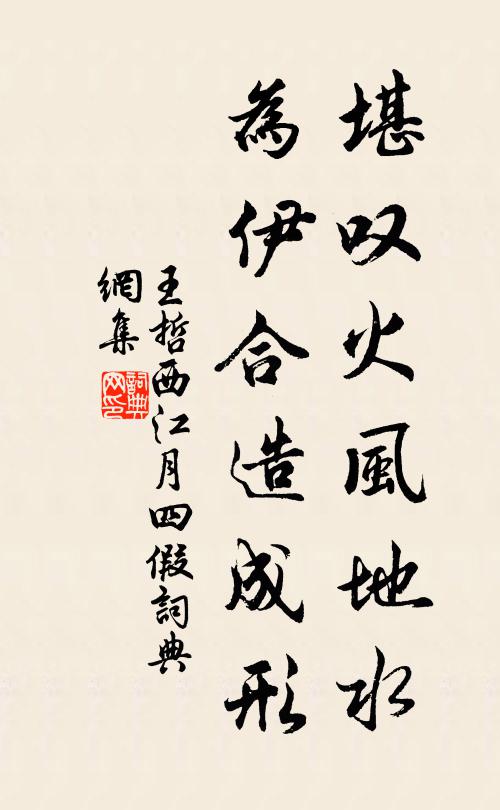 堪叹火風地水
為伊合造成形
王哲西江月四假詞典
網集
詞典
网印